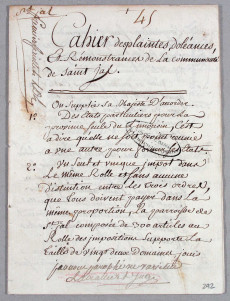 45
Cahier de plaintes, doléances,
Et Remontrances de la communauté
de saint Jal
1º
On Supplie Sa Majesté D'accorder
Des Etats particuliers pour la
province seule du limousin, C'est
à dire qu'elle ne soit point réunie
a une autre pour former Ses Etats
2º
Un Seul et unique impot dans
le même Rolle et sans aucune
distinction entre les trois ordres
que tous doivent payer dans la
même proportion, La paroisse de
St jal composée de 300 articles au
Rolle des impositions Supporte la
tailles de vingt deux Domaines